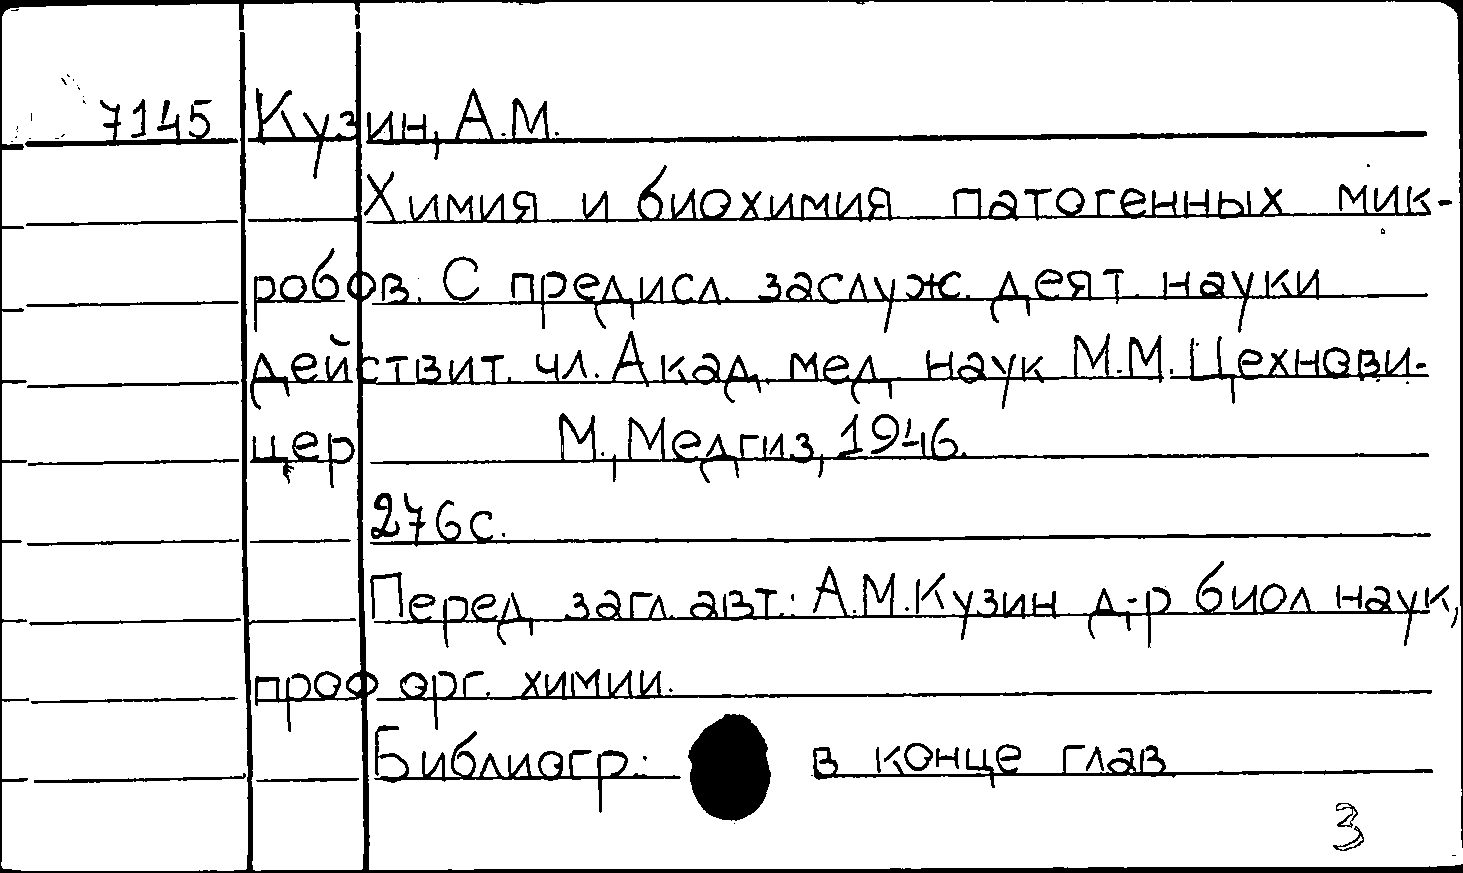 7145 Кузин, А.М.
Химия и биохимия патогенных мик-
робов. С предисл. заслуж. деят. науки
действит. чл. Акад. мед. наук М.М. Цехнови-
цер М., Медгиз, 1946.
276с.
Перед загл. авт.: А.М. Кузин д-р биол наук,
проф орг. химии.
Библиогр.: в конце глав
3